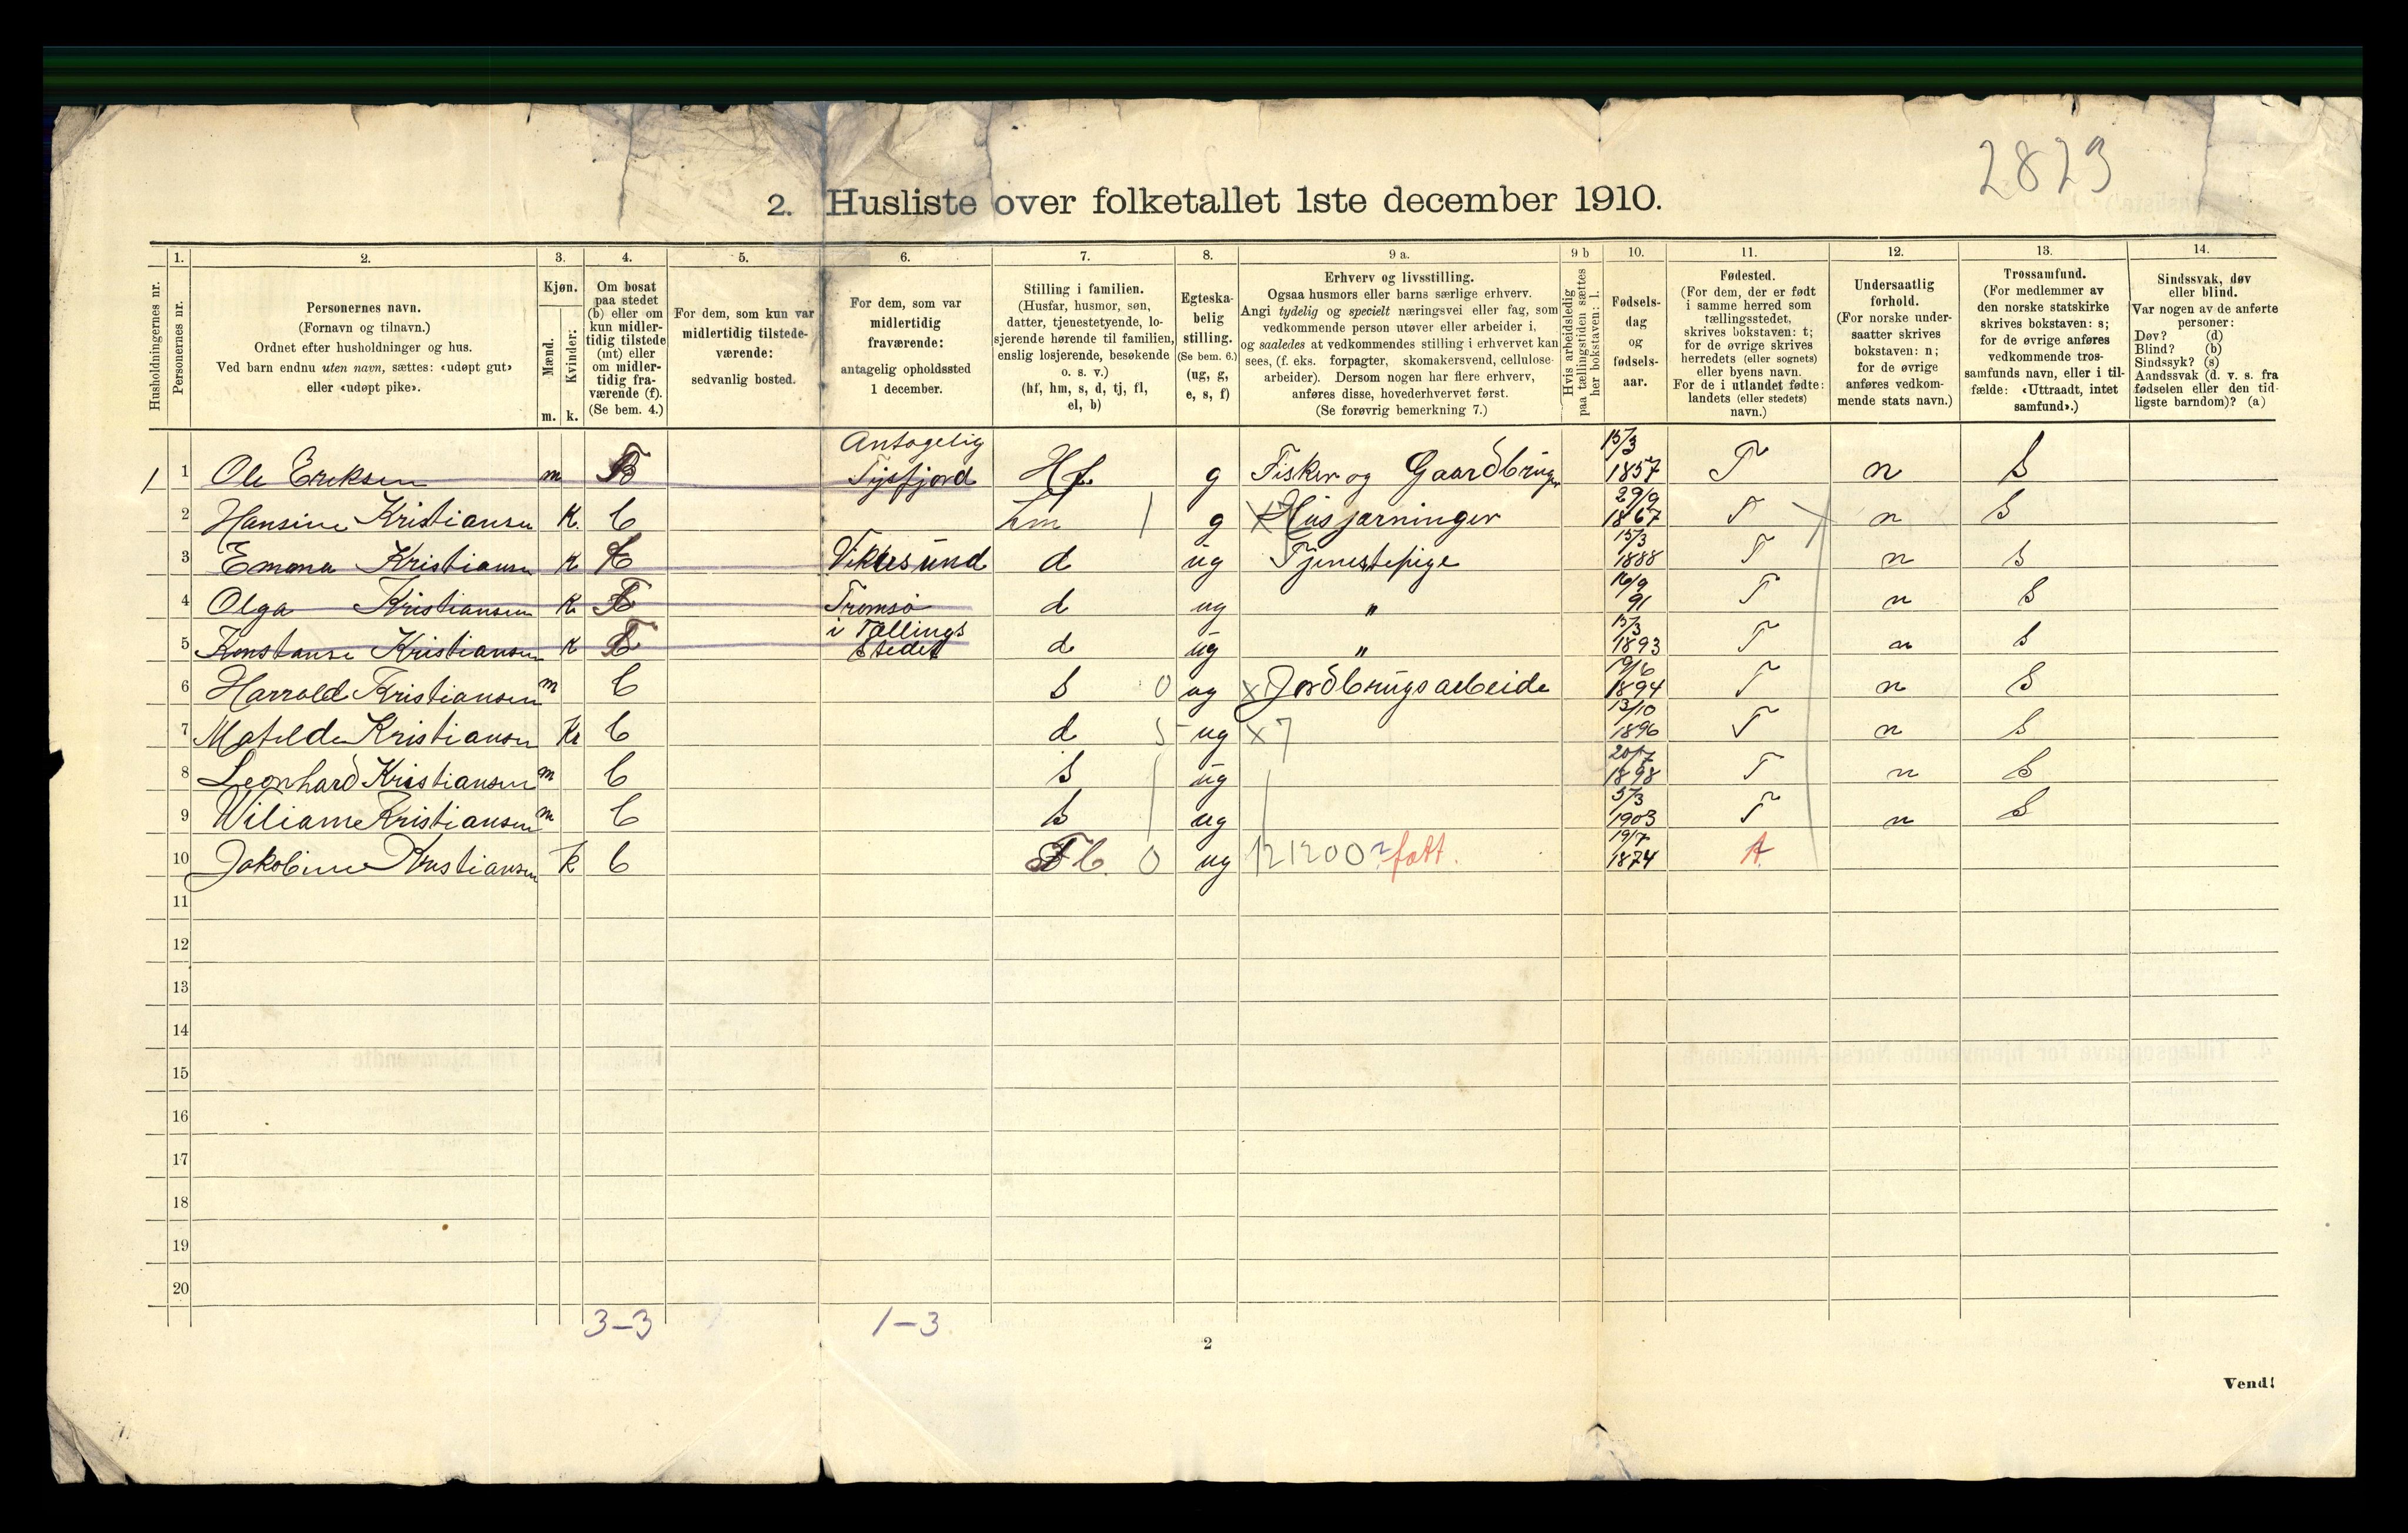 2823
2. Husliste over folketallet 1ste december 1910.
Husholdningernes nr.
1.
Personernes nr.
2.
Personernes navn.
(Fornavn og tilnavn.)
Ordnet efter husholdninger og hus.
Ved barn endnu uten navn, sættes: «udøpt gut»
eller «udøpt pike».
3.
Kjøn.
Mænd.
Kvinder:
m. k.
4.
Om bosat
paa stedet
(b) eller om
kun midler-
tidig tilstede
(mt) eller
om midler-
tidig fra-
værende (f).
(Se bem. 4.)
5.
For dem, som kun var
midlertidig tilstede-
værende:
sedvanlig bosted.
6.
For dem, som var
midlertidig
fraværende:
antagelig opholdssted
1 december.
7.
Stilling i familien.
(Husfar, husmor, søn,
datter, tjenestetyende, lo-
sjerende hørende til familien,
enslig losjerende, besøkende
o. s. v.)
(hf, hm, s, d, tj, fl,
el, b)
8.
Egteska-
belig
stilling.
(Se bem. 6.)
(ug, g,
e, s, f)
9 a.
Erhverv og livsstilling.
Ogsaa husmors eller barns særlige erhverv.
Angi tydelig og specielt næringsvei eller fag, som
vedkommende person utøver eller arbeider i,
og saaledes at vedkommendes stilling i erhvervet kan
sees, (f. eks. forpagter, skomakersvend, cellulose-
arbeider). Dersom nogen har flere erhverv,
anføres disse, hovederhvervet først.
(Se forøvrig bemerkning 7.)
9 b
Hvis arbeidsledig
paa tællingstiden sættes
her bokstaven: l.
10.
Fødsels-
dag
og
fødsels-
aar.
11.
Fødested.
(For dem, der er født
i samme herred som
tællingsstedet,
skrives bokstaven: t;
for de øvrige skrives
herredets (eller sognets)
eller byens navn.
For de i utlandet fødte:
landets (eller stedets)
navn.)
12.
Undersaatlig
forhold.
(For norske under-
saatter skrives
bokstaven: n;
for de øvrige
anføres vedkom-
mende stats navn.)
13.
Trossamfund.
(For medlemmer av
den norske statskirke
skrives bokstaven: s;
for de øvrige anføres
vedkommende tros-
samfunds navn, eller i til-
fælde: «Uttraadt, intet
samfund».)
14.
Sindssvak, døv
eller blind.
Var nogen av de anførte
personer:
Døv? (d)
Blind? (b)
Sindssyk? (s)
Aandssvak (d. v. s. fra
fødselen eller den tid-
ligste barndom)? (a)
1 1 Ole Eriksen m Antagelig Tysfjord Hf g Fisker og Gaardbruger 15/3 1857 T n S
2 Hansine Kristiansen K. b hm 1 g Husjærninger 29/9 1867 T n S
3 Emma Kristiansen K d ug Tjenestepige 15/3 1888 T n S
4 Olga Kristiansen K Tromsø d ug " 16/9 91 T n S
5 Konstanse Kristiansen K i Tællings Stedet d ug " 15/3 1893 T n S
6 Harrold Kristiansen m b S 0 ug x Jordbrugsarbeide 19/6 1894 T n S
7 Matilde Kristiansen K b d 5 ug x7 13/10 1896 T n S
8 Leonhard Kristiansen m b S ug 20/7 1898 T n S
9 Wiliam Kristiansen m b S ug 5/3 1903 T n S
10 Jakobine Kristiansen k b Fl. 0 ug 121200 fatt. 19/7 1874 t.
11
12
13
14
15
16
17
18
19
20
3-3
1-3
2
Vend!